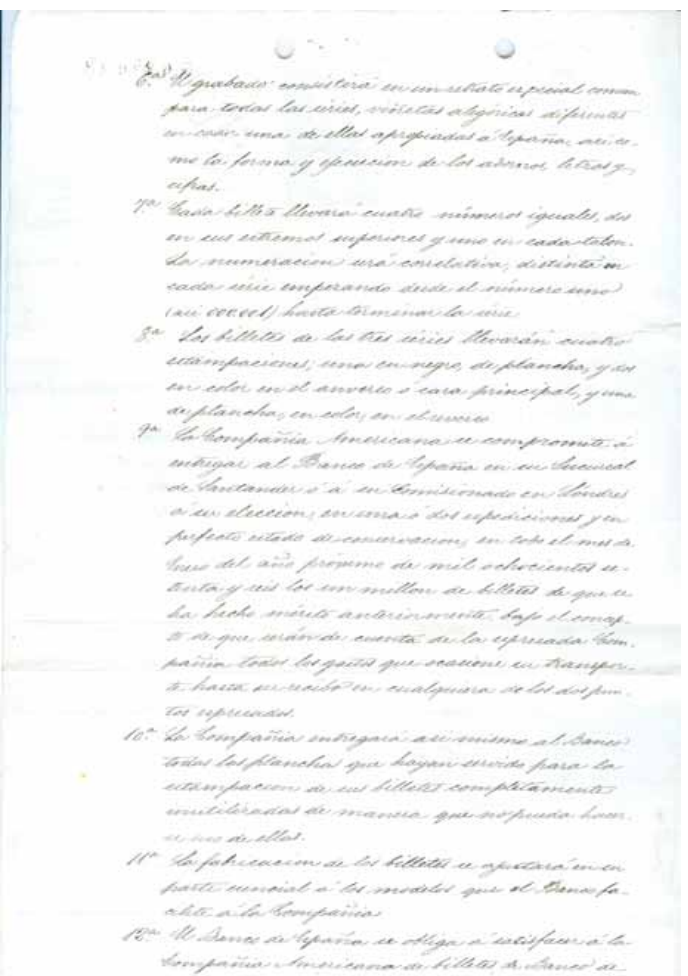 6ª El grabado consistirá en un retrato especial comun
para todas las séries, viñetas alegóricas diferentes
en cada una de ellas apropiadas á España, asi co-
mo la forma y ejecucion de los adornos, letras y
cifras.
7ª Cada billete llevará cuatro números iguales, dos
en sus estremos superiores y uno en cada talon.
La numeracion será correlativa, distinta en
cada série empezando desde el número uno
(asi 000.001) hasta terminar la série
8ª Los billetes de las tres séries llevarán cuatro
estampaciones; una en negro, de plancha, y dos
en color en el anverso ó cara principal, y una
de plancha, en color, en el reverso
9ª La Compañia Americana se compromete á
entregar al Banco de España en su Sucursal
de Santander ó á su Comisionado en Lóndres
á su eleccion, en una ó dos espediciones y en
perfecto estado de conservacion, en todo el mes de
Enero del año próximo de mil ochocientos se-
tenta y seis los un millon de billetes de que se
ha hecho mérito anteriormente, bajo el concep-
to de que serán de cuenta de la espresada Com-
pañia todos los gastos que ocasione su transpor-
te hasta su recibo en cualquiera de los dos pun-
tos espresados.
10ª La Compañia entregará asi mismo al Banco
todas las planchas que hayan servido para la
estampacion de sus billetes completamente
inutilizadas de manera que no pueda hacer-
se uso de ellas.
11ª La fabricacion de los billetes se ajustará en su
parte esencial á los modelos que el Banco fa-
cilite á la Compañia
12ª El Banco de España se obliga á satisfacer á la
Compañia Americana de billetes de Banco de